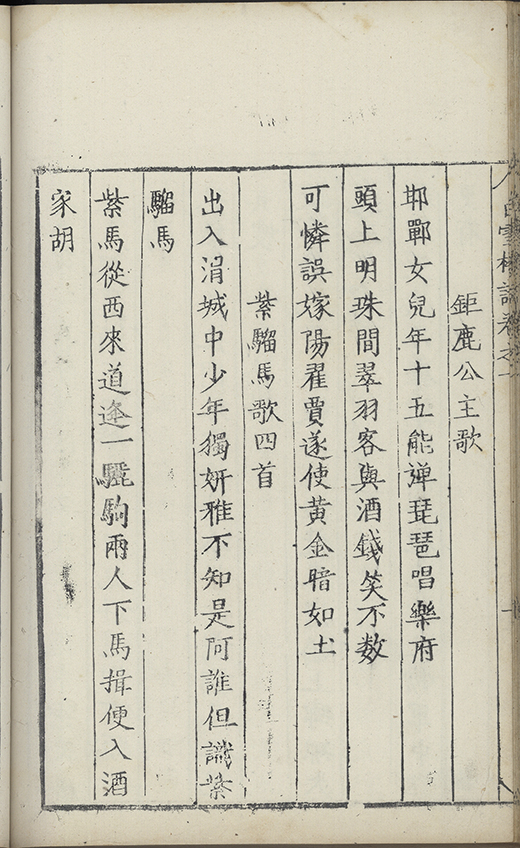 鉅鹿公主歌
邯鄲女兒年十五能彈琵琶唱樂府
頭上明珠間翠羽客與酒錢笑不數
可憐誤嫁陽翟賈遂使黃金暗如土
紫騮馬歌四首
出入涓城中少年獨妍雅不知是阿誰但識紫
騮馬
紫馬從西來道逢一驪駒兩人下馬揖便入酒
家胡